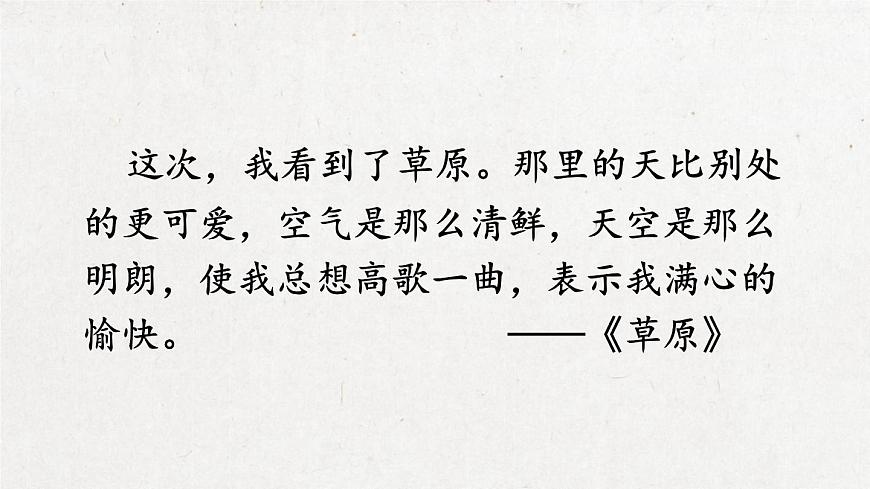 这次，我看到了草原。那里的天比别处
的更可爱，空气是那么清鲜，天空是那么
明朗，使我总想高歌一曲，表示我满心的
愉快。 ——《草原》